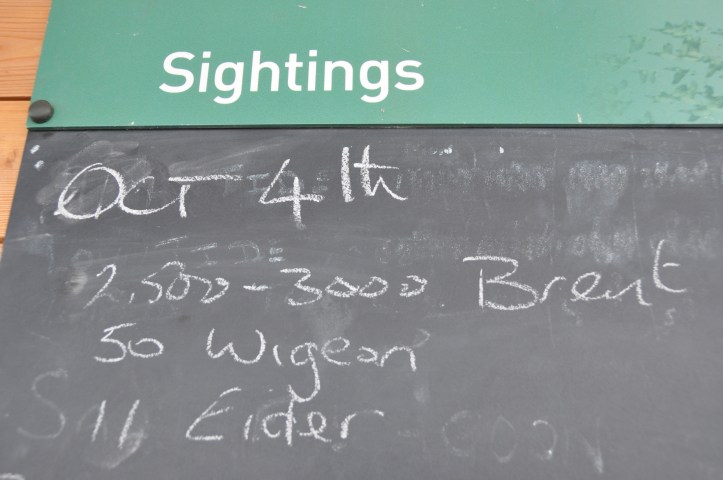 Sightings
OCT 4th
2,500-3000 Brent
50 Wigeon
11 Eider